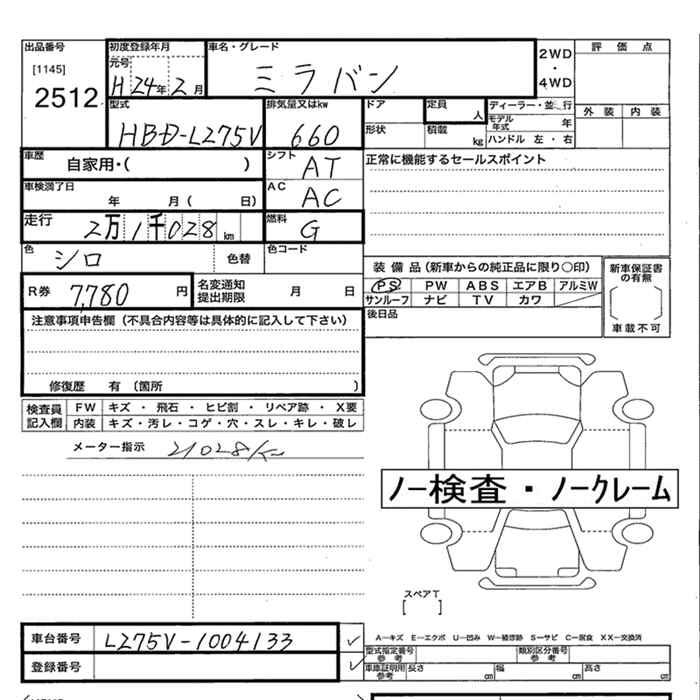 出品番号 初度登録年月 車名・グレード 2WD 評価点
[1145] 元号
2512 H 24年 2月 ミラバン ・ 4WD
型式 排気量又はkw ドア 定員 人 ディーラー・並行 外装 内装
HBD-L275V 660 形状 積載 kg モデル年式 年
ハンドル 左・右
車歴 自家用・( ) シフト AT 正常に機能するセールスポイント
車検満了日 年 月( 日) AC AC
走行 2万1千028km 燃料 G
色 シロ 色替 色コード
装備品(新車からの純正品に限り○印) 新車保証書の有無
R券 7,780 円 名変通知提出期限 月 日
PS PW ABS エアB アルミW
サンルーフ ナビ TV カワ
後日品 車載不可
注意事項申告欄(不具合内容等は具体的に記入して下さい)
修復歴 有〔箇所 〕
検査員記入欄 FW キズ・飛石・ヒビ割・リペア跡・X要
内装 キズ・汚レ・コゲ・穴・スレ・キレ・破レ
メーター指示 21028km
ノー検査・ノークレーム
スペアT
[ ]
車台番号 L275V-1004133
A−キズ E−エクボ U−凹み W−補修跡 S−サビ C−腐食 XX−交換済
登録番号
型式指定番号 参考 類別区分番号 参考
車庫証明用 参考 長さ cm 幅 cm 高さ cm